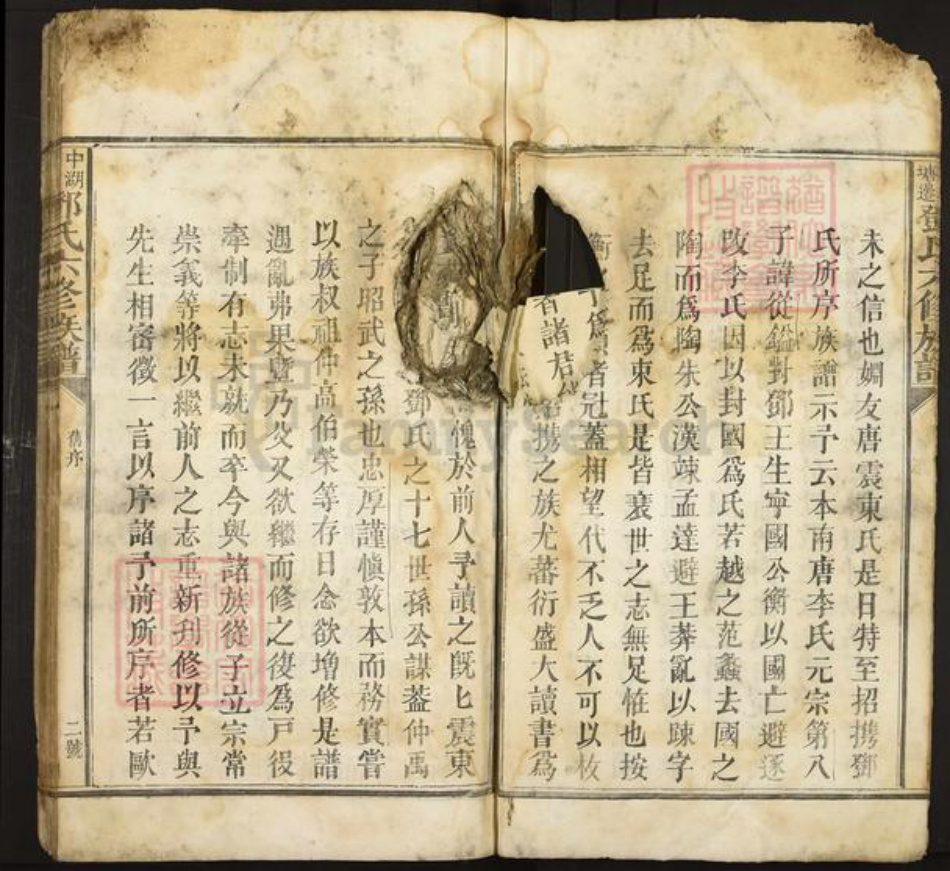 鄧氏六修族譜
未之信也嫻友唐震東氏是日特至招携鄧
氏所序族譜示予云本南唐李氏元宗第八
子諱從鎰對鄧王生寧國公衡以國亡避逐
改李氏因以封國爲氏若越之范蠡去國之
陶而爲陶朱公漢竦孟達避王莽亂以踈字
去足而爲束氏是皆衰世之志無足惟也按
衡之 者冠蓋相望代不乏人不可以枚
者諸君 携之族尤蕃衍盛大讀書爲
愧於前人予讀之旣匕震東
鄧氏之十七世孫公謀葢仲禹
之子昭武之孫也忠厚謹愼敦本而務實嘗
以族叔祖仲高伯榮等存日念欲增修是譜
遇亂弗果曁乃父又欲繼而修之復爲戸役
牽制有志未就而卒今與諸族從子立宗常
崇義等將以繼前人之志重新刋修以予與
先生相密徵一言以序諸予前所序者若歐
中湖鄧氏六修族譜
舊序
二號